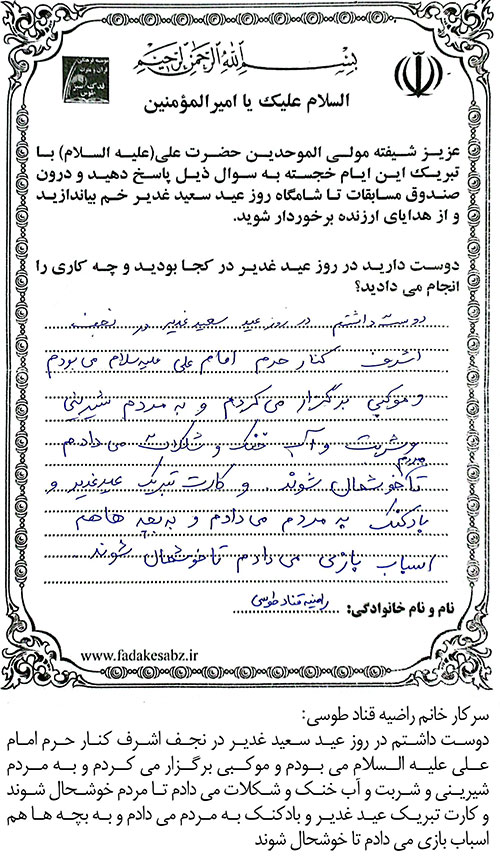 بسم الله الرحمن الرحیم
السلام علیک یا امیرالمؤمنین
عزیز شیفته مولی الموحدین حضرت علی(علیه السلام) با
تبریک این ایام خجسته به سوال ذیل پاسخ دهید و درون
صندوق مسابقات تا شامگاه روز عید سعید غدیر خم بیاندازید
و از هدایای ارزنده برخوردار شوید.
دوست دارید در روز عید غدیر در کجا بودید و چه کاری را
انجام می دادید؟
دوست داشتم در روز عید سعید غدیر در نجف
اشرف کنار حرم امام علی علیه سلام می بودم
و موکبی برگزار می کردم و به مردم شیرینی
و شربت و آب خنک و شکلات می دادم
تا مردم خوشحال شوند و کارت تبریک عید غدیر و
بادکنک به مردم می دادم و به بچه ها هم
اسباب بازی می دادم تا خوشحال شوند.
نام و نام خانوادگی: راضیه قناد طوسی
www.fadakesabz.ir
سرکار خانم راضیه قناد طوسی:
دوست داشتم در روز عید سعید غدیر در نجف اشرف کنار حرم امام
علی علیه السلام می بودم و موکبی برگزار می کردم و به مردم
شیرینی و شربت و آب خنک و شکلات می دادم تا مردم خوشحال شوند
و کارت تبریک عید غدیر و بادکنک به مردم می دادم و به بچه ها هم
اسباب بازی می دادم تا خوشحال شوند